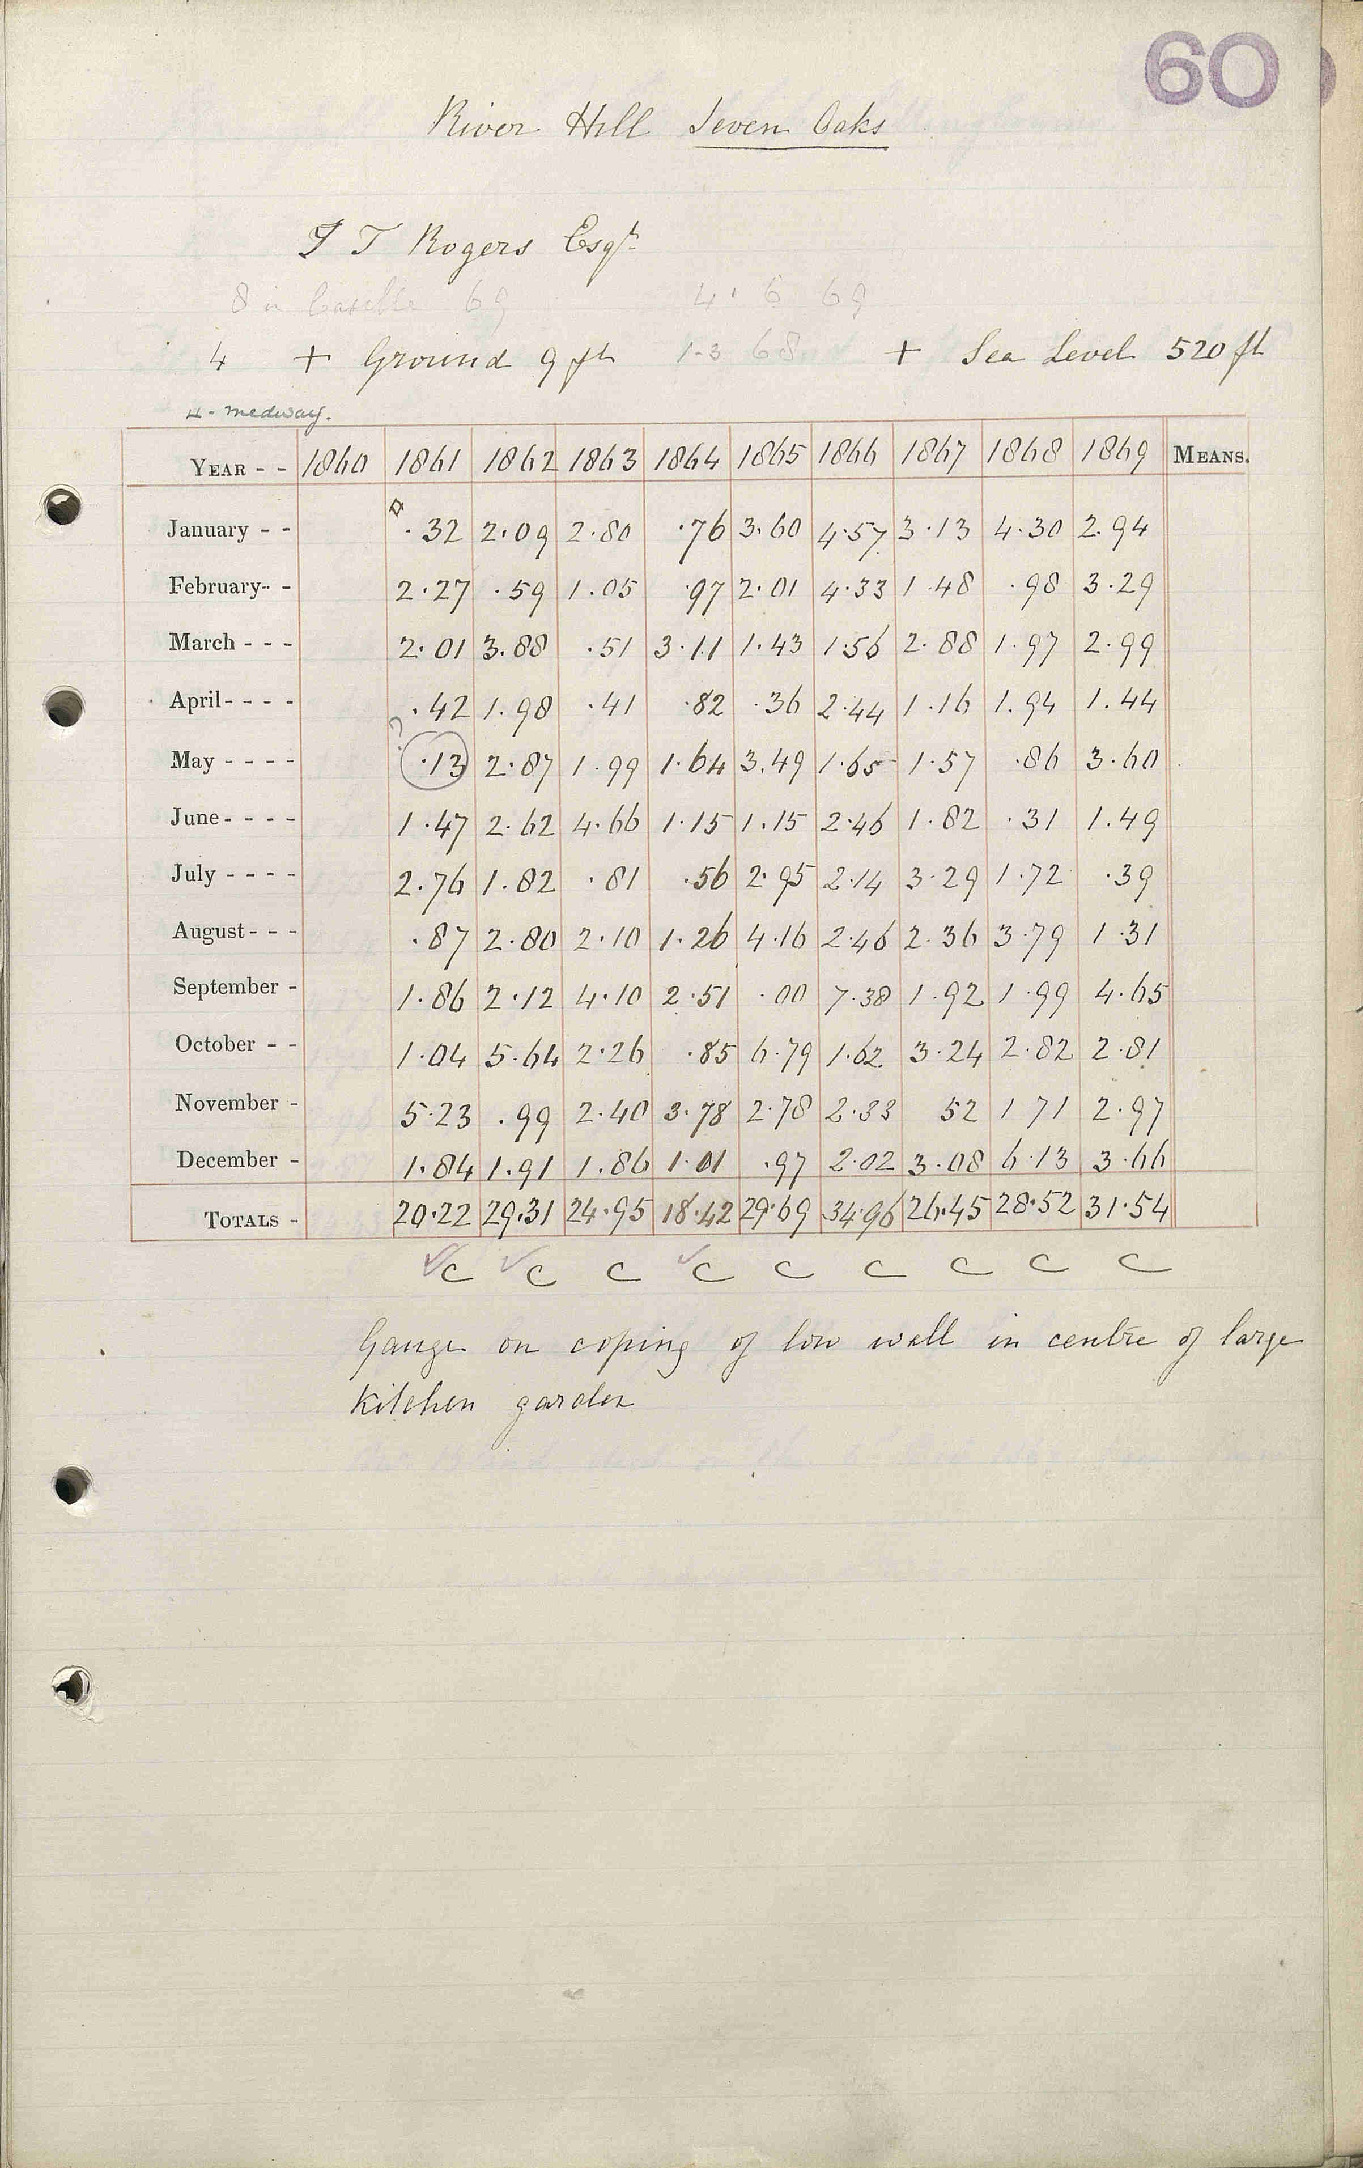 60
River Hill Seven Oaks
T Rogers Esqr
8 in 69 4. 6 69
4 + Ground 9 ft 1-3 68 + Sea Level 520 ft
4 - medway.
YEAR - - 1860 1861 1862 1863 1864 1865 1866 1867 1868 1869 MEANS.
January - - .32 2.09 2.80 .76 3.60 4.57 3.13 4.30 2.94
February- - 2.27 .59 1.05 .97 2.01 4.33 1.48 .98 3.29
March - - - 2.01 3.88 .51 3.11 1.43 1.56 2.88 1.97 2.99
April- - - - .42 1.98 .41 .82 .36 2.44 1.16 1.94 1.44
May - - - - ? .13 2.87 1.99 1.64 3.49 1.65 1.57 .86 3.60
June- - - - 1.47 2.62 4.66 1.15 1.15 2.46 1.82 .31 1.49
July - - - - 2.76 1.82 .81 .56 2.95 2.14 3.29 1.72 .39
August- - - .87 2.80 2.10 1.26 4.16 2.46 2.36 3.79 1.31
September - 1.86 2.12 4.10 2.51 .00 7.38 1.92 1.99 4.65
October - - 1.04 5.64 2.26 .85 6.79 1.62 3.24 2.82 2.81
November - 5.23 .99 2.40 3.78 2.78 2.33 52 1 71 2.97
December - 1.84 1.91 1.86 1.01 .97 2.02 3.08 6.13 3.66
TOTALS - 20.22 29.31 24.95 18.42 29.69 34.96 26.45 28.52 31.54
C C C C C C C C C
Gauge on coping of low wall in centre of large
Kitchen garden